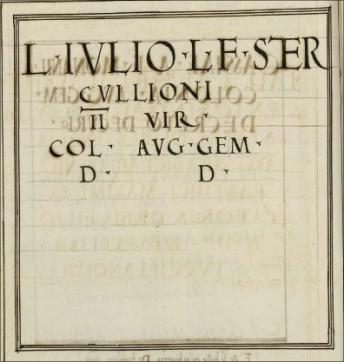 L·IVLIO·L·F·SER
CVLLIONI
II VIR·
COL· AVG·GEM·
D· D·